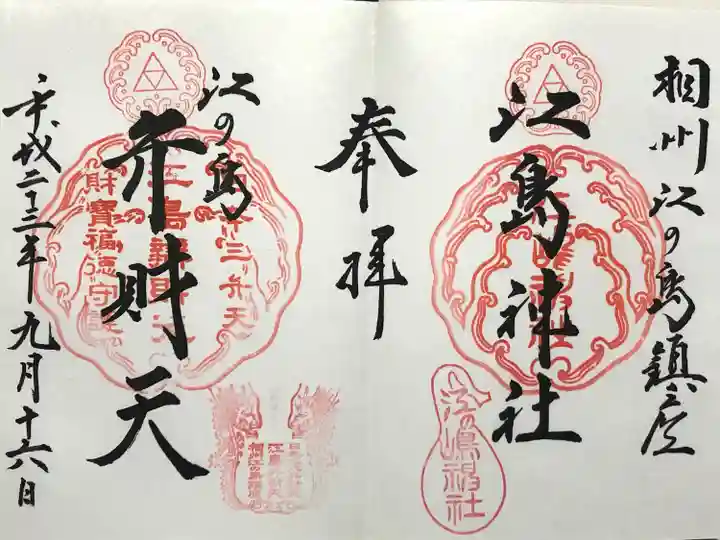 相州江の島鎮座
江島神社
奉拝
江の島
弁財天
平成二十三年九月十六日
江の嶋神社
財寶福徳守護